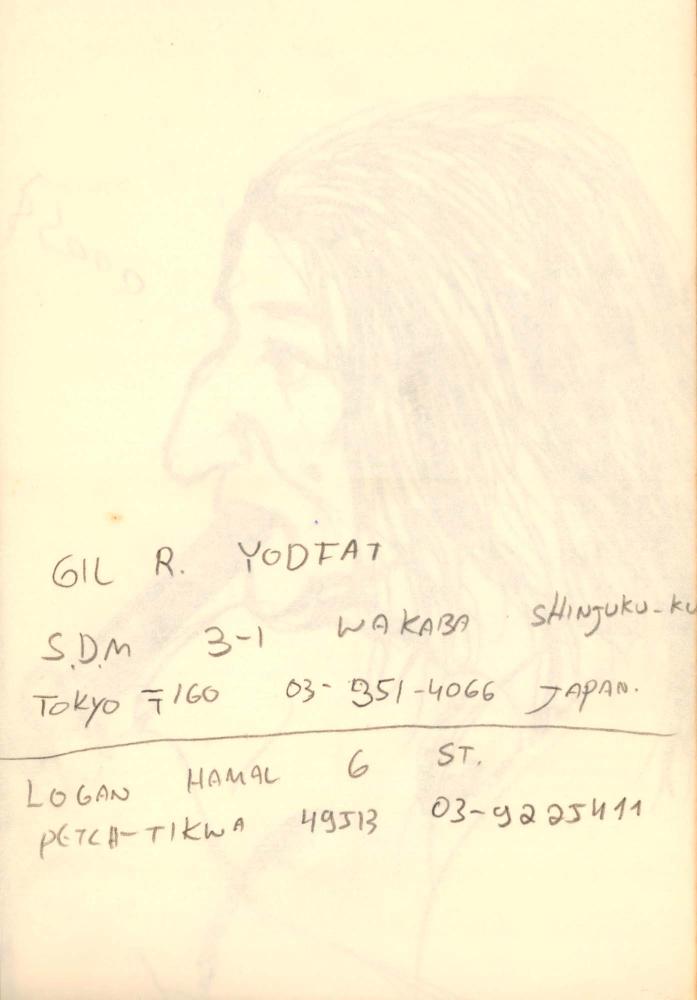 GIL R. YODFAT
S.D.M 3-1 WAKABA SHINJUKU-KU
TOKYO 〒160 03-351-4066 JAPAN.
LOGAN HAMAL 6 ST.
PETCH-TIKWA 49513 03-9225411